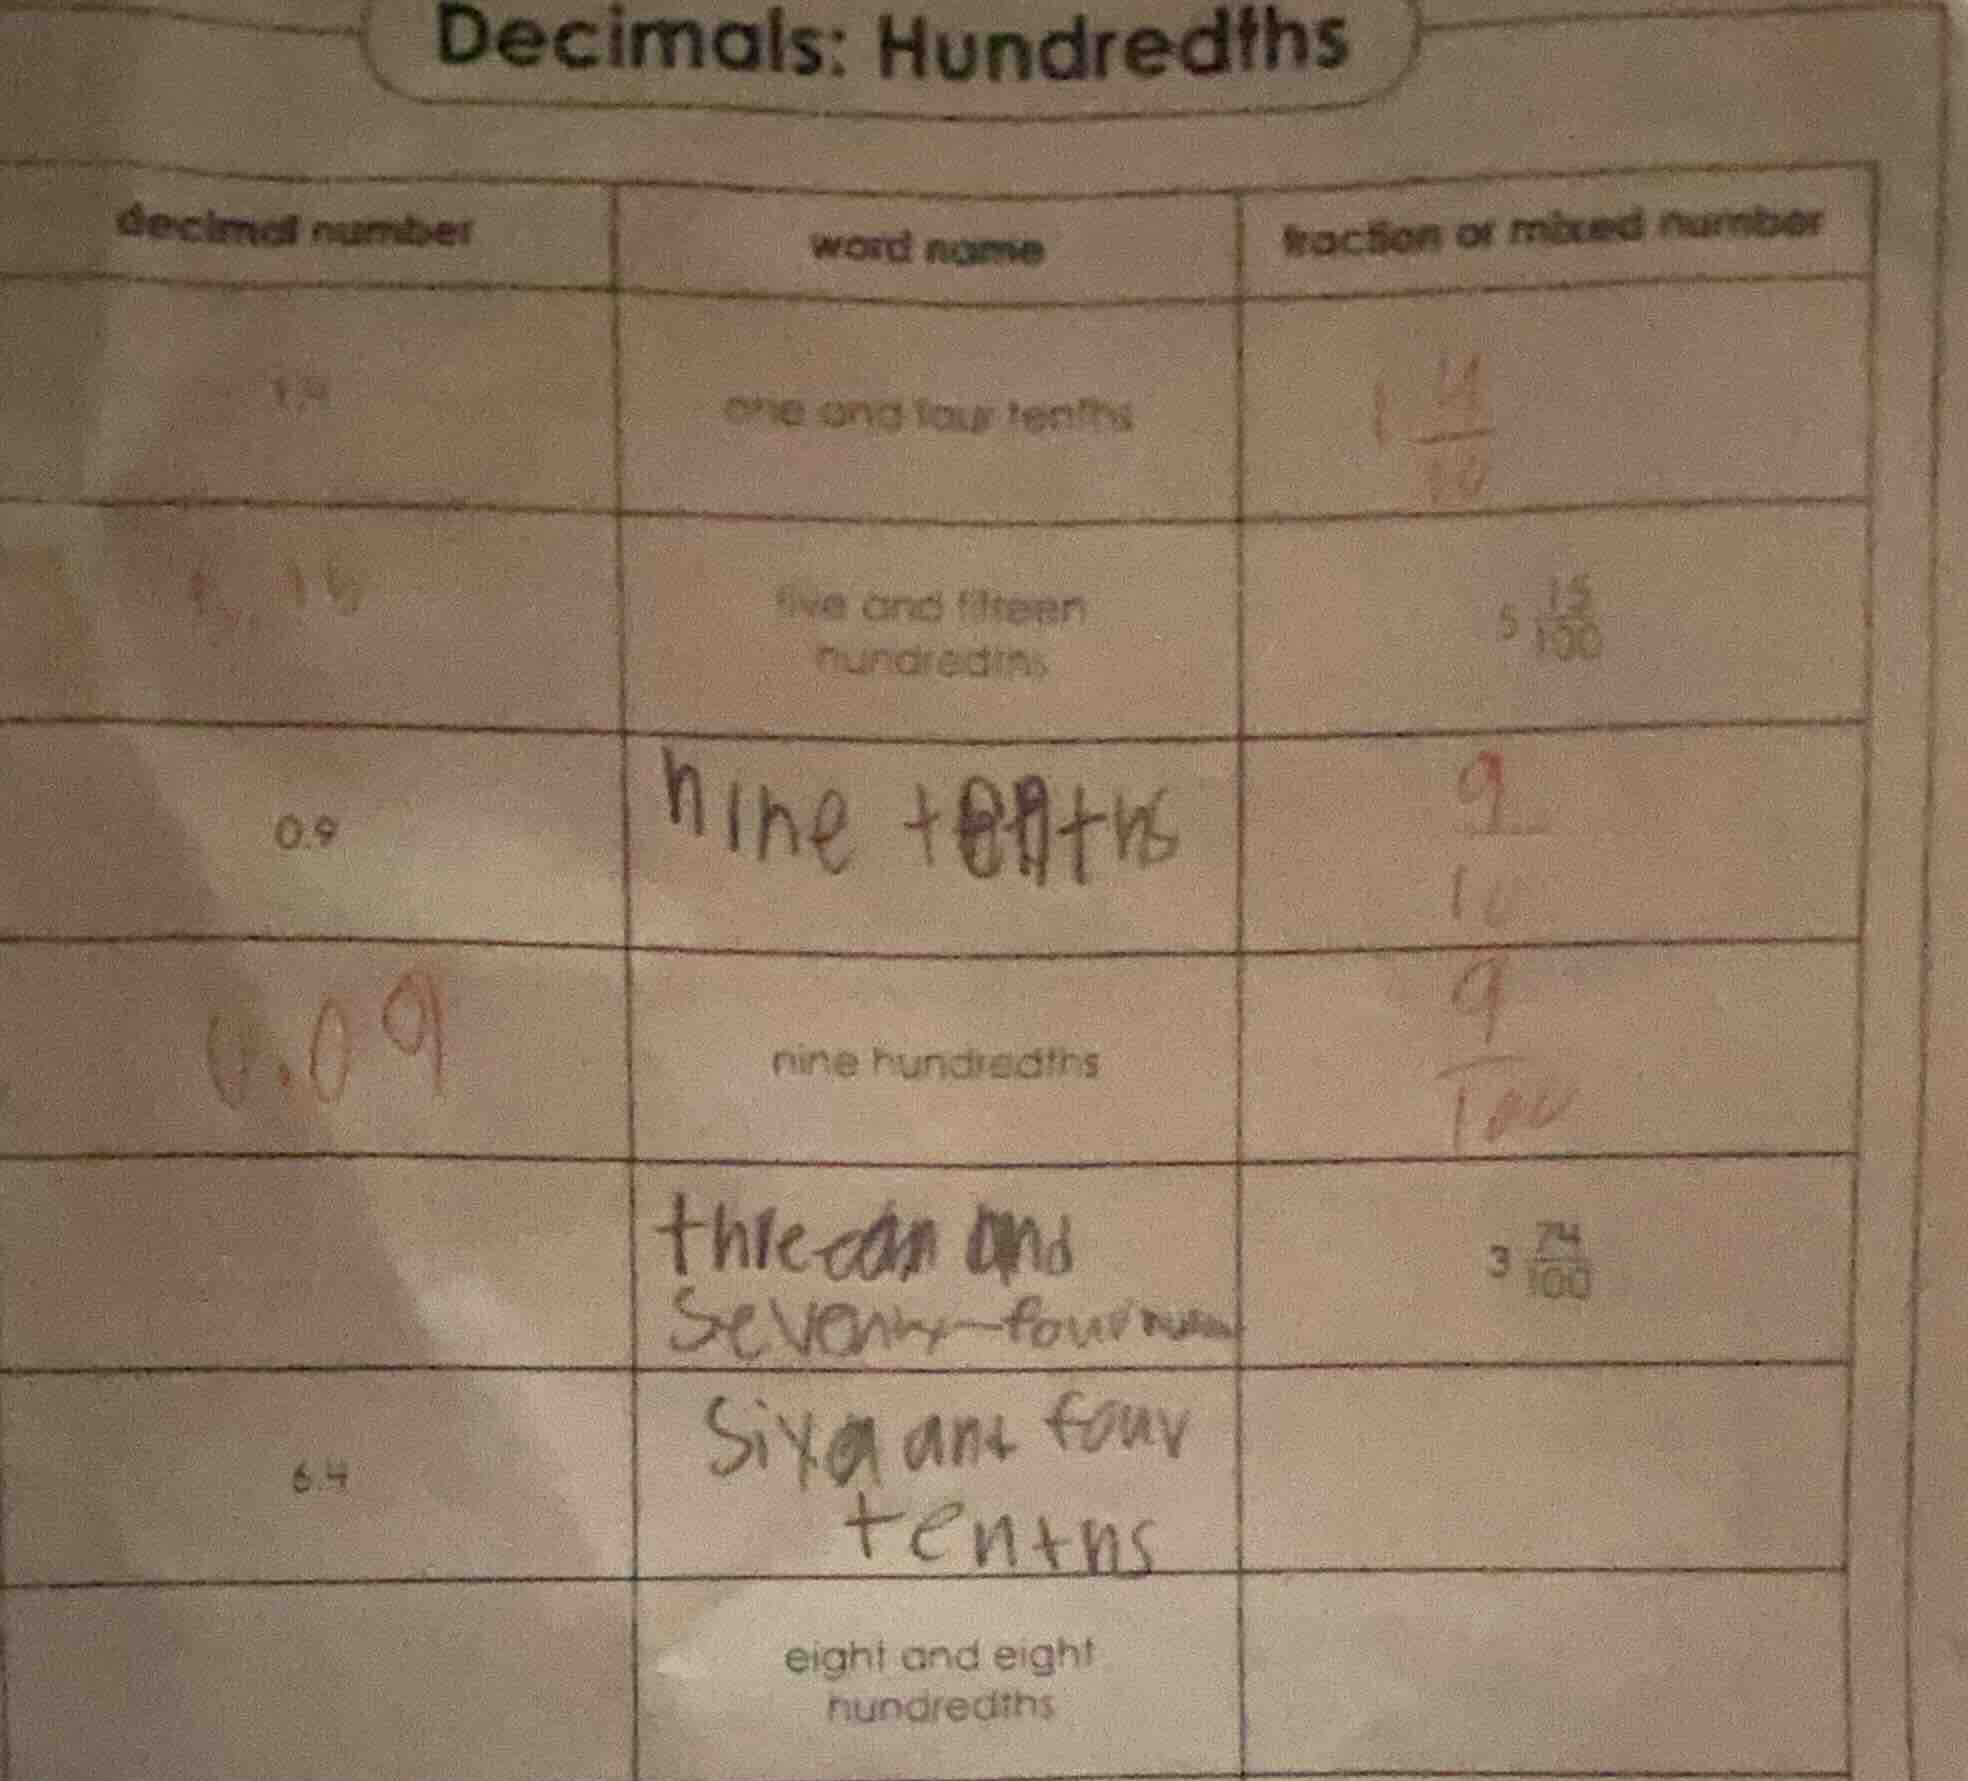 Decimals: Hundredths
decimal number word name fraction or mixed number
1.4 one and four tenths 1 4/10
5.15 five and fifteen hundredths 5 15/100
0.9 nine tenths 9/10
0.09 nine hundredths 9/100
and
seventy-four 3 74/100
6.4 and four
tenths
eight and eight
hundredths